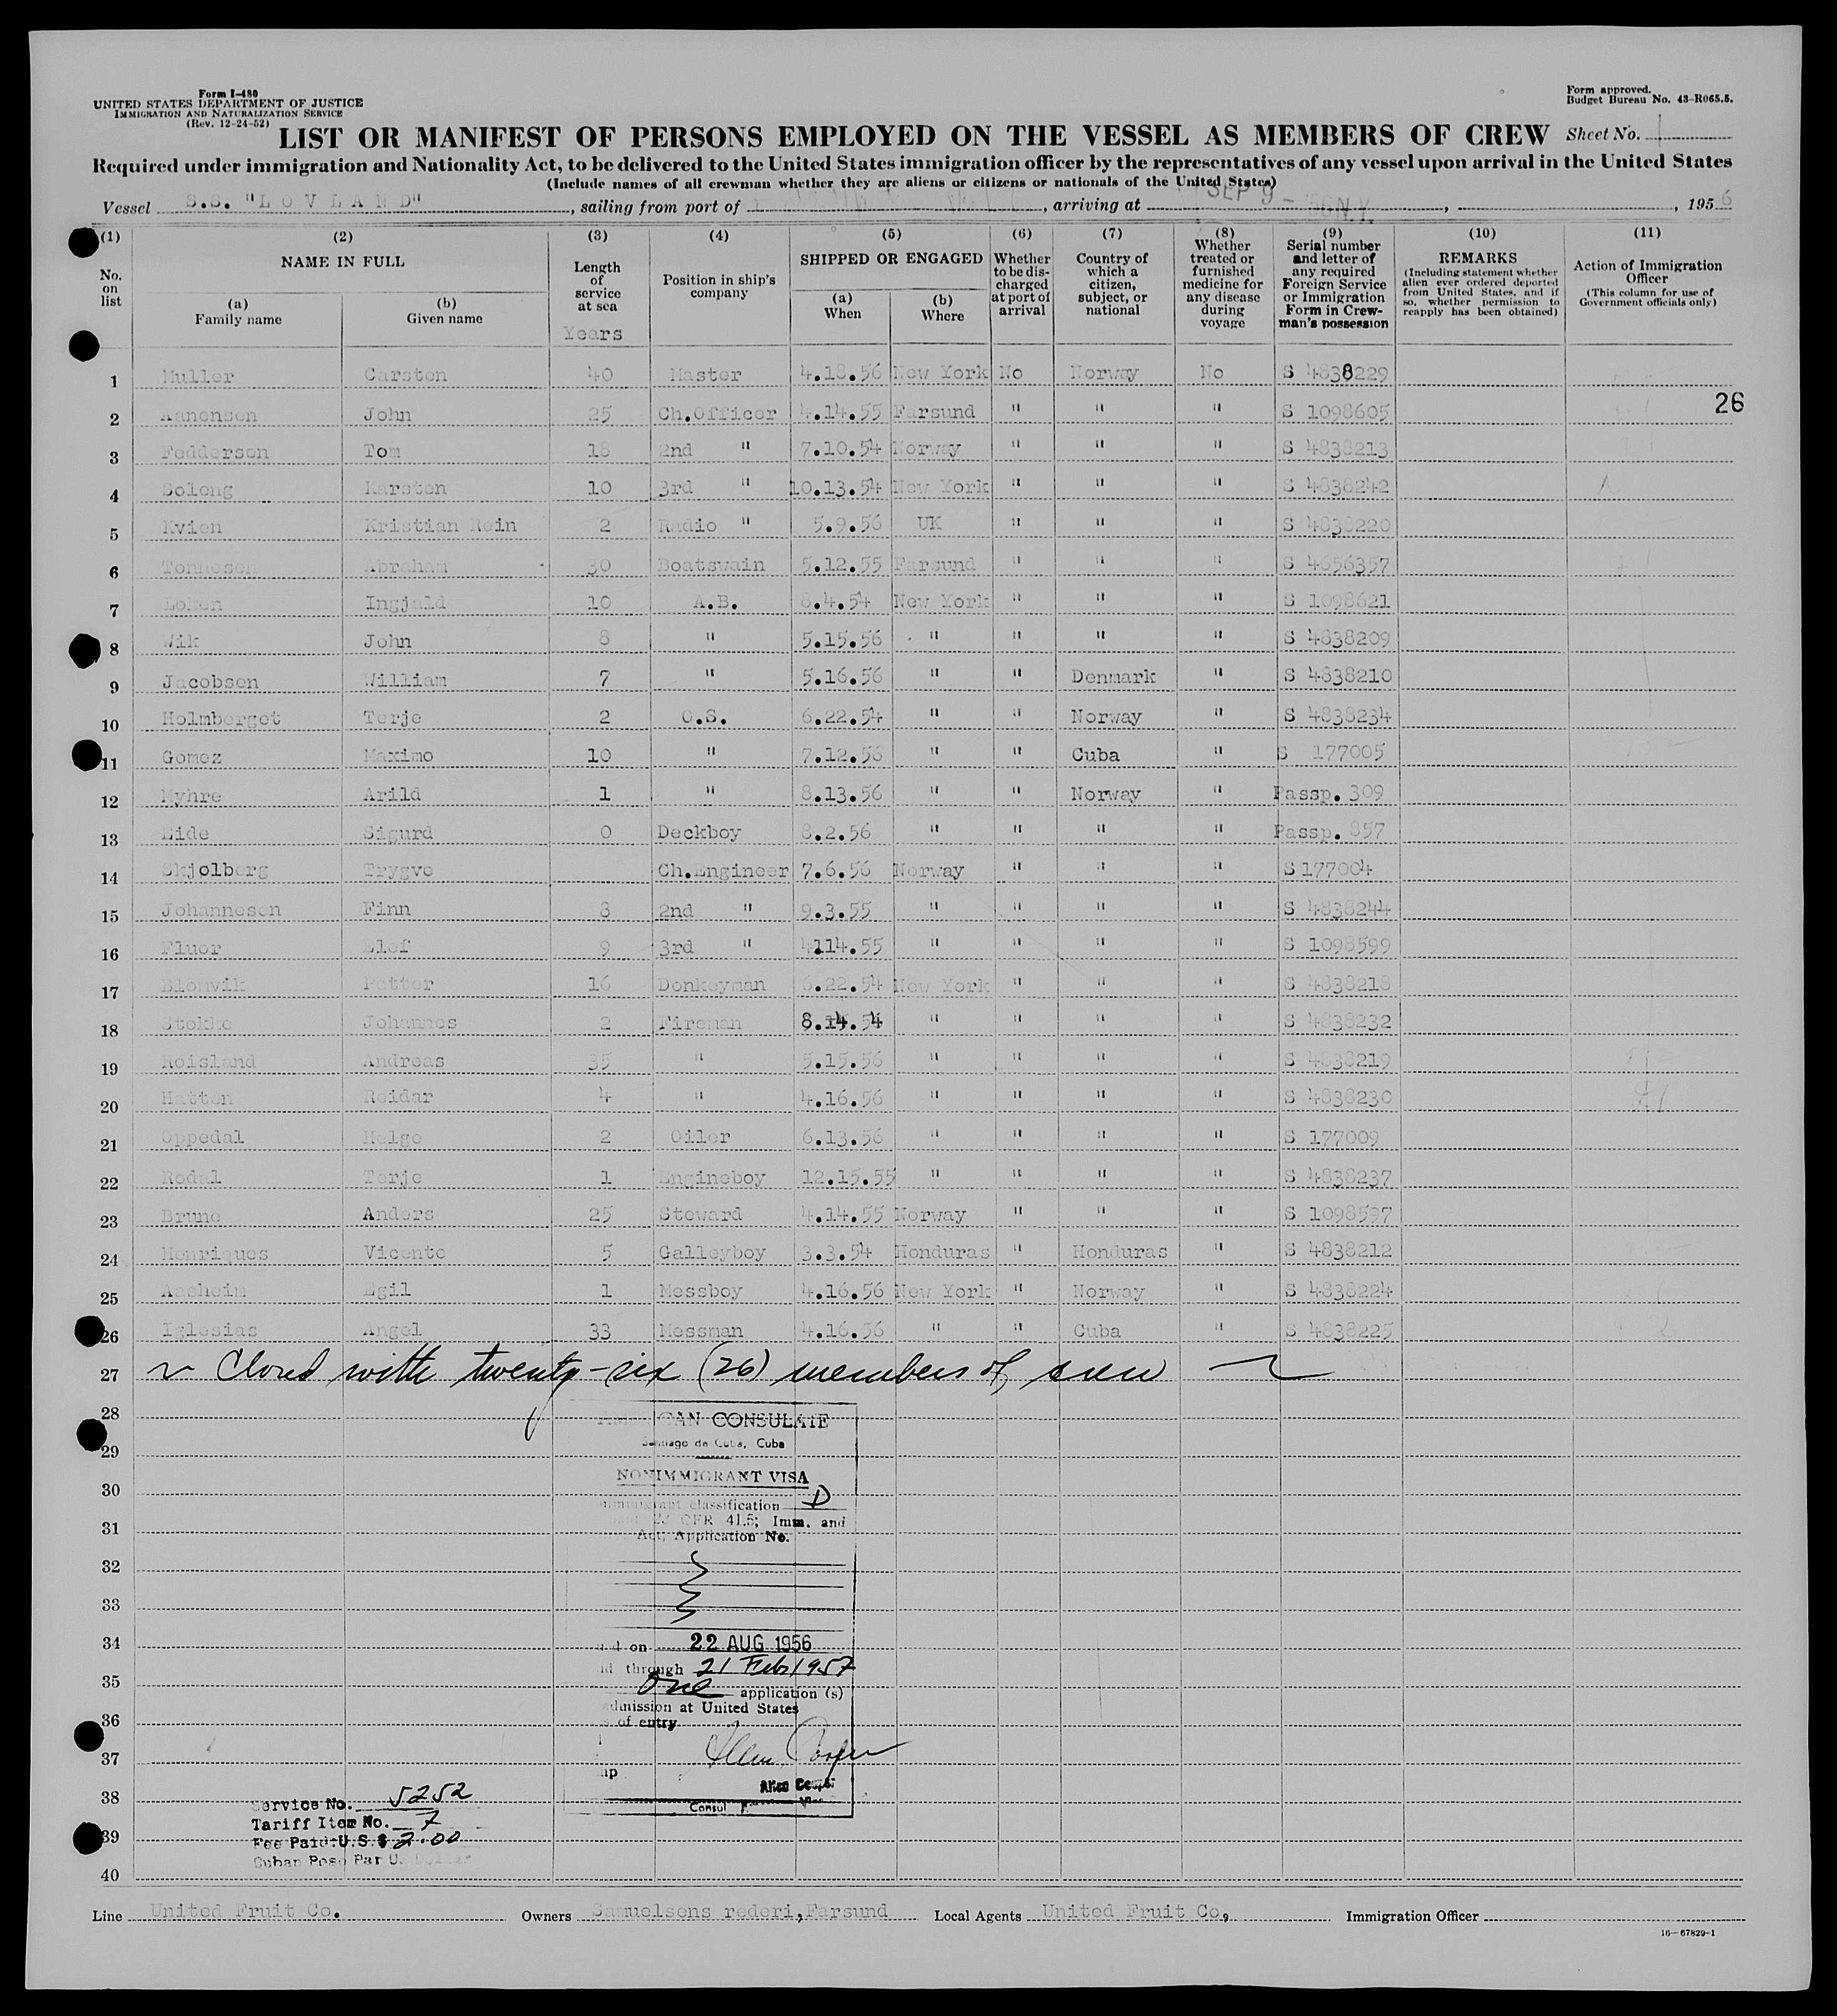 Form I-480
UNITED STATES DEPARTMENT OF JUSTICE
IMMIGRATION AND NATURALIZATION SERVICE
(Rev. 12-24-52)
Form approved.
Budget Bureau No. 43-R065.5.
LIST OR MANIFEST OF PERSONS EMPLOYED ON THE VESSEL AS MEMBERS OF CREW Sheet No. 1
Required under immigration and Nationality Act, to be delivered to the United States immigration officer by the representatives of any vessel upon arrival in the United States
(Include names of all crewman whether they are aliens or citizens or nationals of the United States)
Vessel S.S. "LOVLAND", sailing from port of , arriving at SEP 9 - '56 N.Y. , , 1956
(1) No. on list
(2) NAME IN FULL (a) Family name (b) Given name
(3) Length of service at sea Years
(4) Position in ship's company
(5) SHIPPED OR ENGAGED (a) When (b) Where
(6) Whether to be discharged at port of arrival
(7) Country of which a citizen, subject, or national
(8) Whether treated or furnished medicine for any disease during voyage
(9) Serial number and letter of any required Foreign Service or Immigration Form in Crewman's possession
(10) REMARKS (Including statement whether alien ever ordered deported from United States, and if so, whether permission to reapply has been obtained)
(11) Action of Immigration Officer (This column for use of Government officials only)
1 Muller Carsten 40 Master 4.18.56 New York No Norway No S 4838229
2 Aanensen John 25 Ch.Officer 4.14.55 Farsund " " " S 1098605 26
3 Fedderson Tom 18 2nd " 7.10.54 Norway " " " S 4838213
4 Soleng Karsten 10 3rd " 10.13.54 New York " " " S 4838242
5 Kvien Kristian Rein 2 Radio " 5.9.56 UK " " " S 4838220
6 Tonnesen Abraham 30 Boatswain 5.12.55 Farsund " " " S 4656357
7 Loken Ingjald 10 A.B. 8.4.54 New York " " " S 1098621
8 Wik John 8 " 5.15.56 " " " " S 4838209
9 Jacobsen William 7 " 5.16.56 " " Denmark " S 4838210
10 Holmberget Terje 2 O.S. 6.22.54 " " Norway " S 4838234
11 Gomez Maximo 10 " 7.12.56 " " Cuba " S 177005
12 Myhre Arild 1 " 8.13.56 " " Norway " Passp. 309
13 Eide Sigurd 0 Deckboy 8.2.56 " " " " Passp. 857
14 Skjølberg Trygve Ch.Engineer 7.6.56 Norway " " " S 177004
15 Johannesen Finn 8 2nd " 9.3.55 " " " " S 4838244
16 Fluor Elef 9 3rd " 4114.55 " " " " S 1098599
17 Blomvik Petter 16 Donkeyman 6.22.54 New York " " " S 4838218
18 Stokke Johannes 2 Fireman 8.14.54 " " " " S 4838232
19 Roisland Andreas 35 " 5.15.56 " " " " S 4838219
20 Hatten Reidar 4 " 4.16.56 " " " " S 4838230
21 Oppedal Helge 2 Oiler 6.13.56 " " " " S 177009
22 Rodal Terje 1 Engineboy 12.15.55 " " " " S 4838237
23 Brune Anders 25 Steward 4.14.55 Norway " " " S 1098597
24 Henriques Vicente 5 Galleyboy 3.3.54 Honduras " Honduras " S 4838212
25 Aasheim Egil 1 Messboy 4.16.56 New York " Norway " S 4838224
26 Iglesias Angel 33 Messman 4.16.56 " " Cuba " S 4838225
27 Closed with twenty-six (26) members of crew
28 AMERICAN CONSULATE
29 Santiago de Cuba, Cuba
30 NONIMMIGRANT VISA
classification D
31 22 CFR 41.5; Imm. and
Act; Application No.
32
33
34 on 22 AUG 1956
through 21 Feb 1957
35 One application (s)
admission at United States
36 of entry
37
38 Consul
Service No. 5252
Tariff Item No. 7
39 Fee Paid: U.S.$ 2.00
Cuban Peso Par U. Dollar
40
Line United Fruit Co. Owners Samuelsens rederi, Farsund Local Agents United Fruit Co, Immigration Officer
16-67829-1